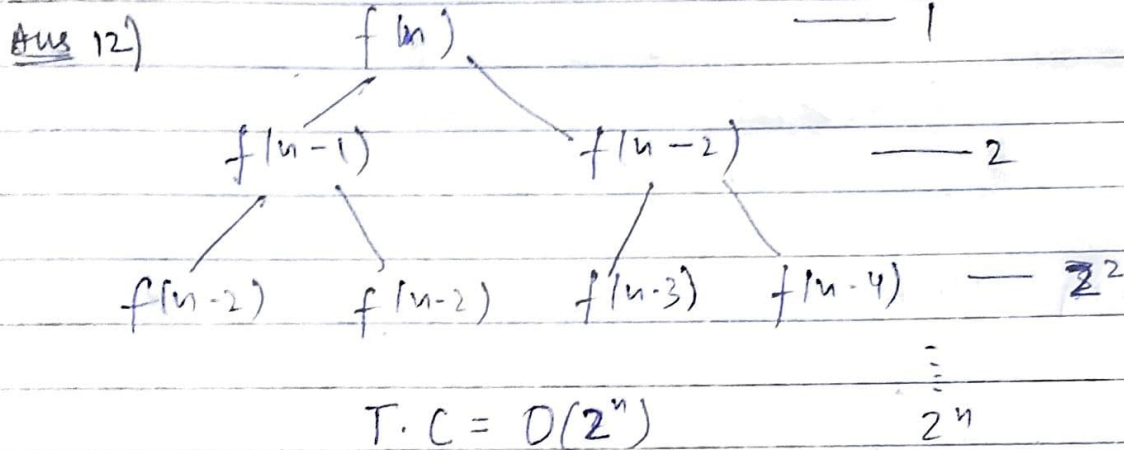 Ans 12) f(n) — 1
f(n-1) f(n-2) — 2
f(n-2) f(n-2) f(n-3) f(n-4) — 2²
⋮
T.C = O(2ⁿ) 2ⁿ